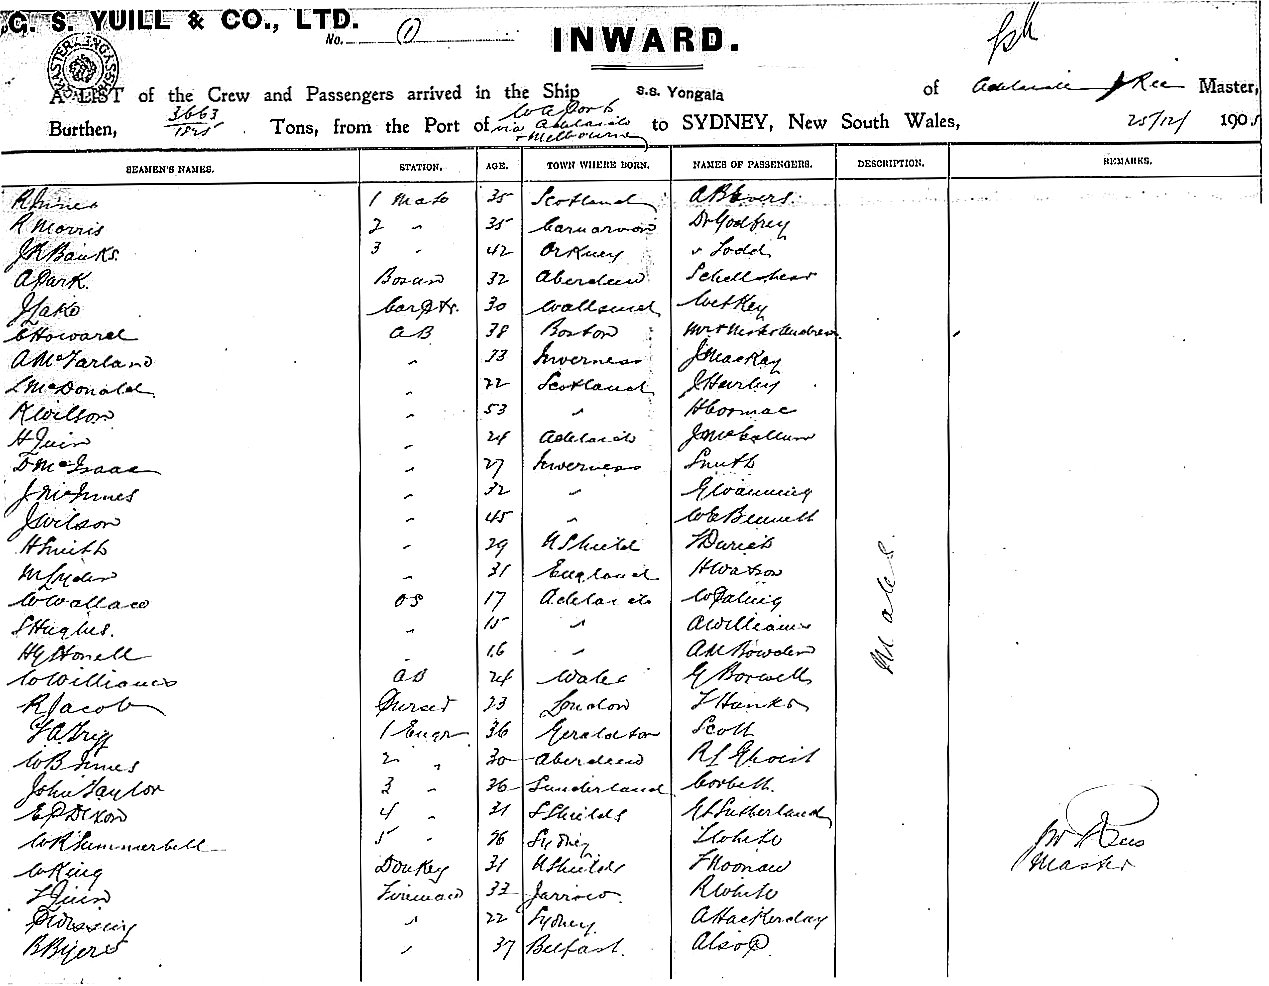 G. S. YUILL & CO., LTD.
No. (1)
INWARD.
A LIST of the Crew and Passengers arrived in the Ship S.S. Yongala of Adelaide J Rees Master,
Burthen, 3663 / 1825 Tons, from the Port of W A Ports via Adelaide & Melbourne to SYDNEY, New South Wales, 25/12/ 1905
SEAMEN'S NAMES. STATION. AGE. TOWN WHERE BORN. NAMES OF PASSENGERS. DESCRIPTION. REMARKS.
R Innes 1 Mate 35 Scotland A B Evers.
R Morris 2 " 35 Carnarvon Dr Godfrey
J R Banks. 3 " 42 Orkney " Todd
A Park. Bosun 32 Aberdeen
J Jako Carptr. 30 Wallsend Key
C Howard AB 38 Boston Mr & Mrs Andrew
A McFarland " 33 Inverness J MacKay
L McDonald " 22 Scotland J Hurley
R Wilson " 53 " H Cormac
H Quin " 24 Adelaide J McCallum
D McIsaac " 27 Inverness Smith
J McInnes " 32 " G Wanning
J Wilson " 45 " W E Bennett
H Smith " 29 N Shield T Davies
M Lyden " 31 England H Watson
W Wallace OS 17 Adelaide W Paling
S Hughes. " 15 " A Williams
H G Honell " 16 " A M Bowden
W Williams AB 24 Wales G Boswell
R Jacob Purser 23 London T Hanks
1 Engr 36 Geraldton Scott
W B Innes 2 " 30 Aberdeen
John Taylor 3 " 36 Sunderland Corbett.
E P Dixon 4 " 31 S Shields G L Sutherland
W R Summerbell 5 " 26 Sydney T White
W King Donkey 31 N Shields T Noonan
T Quin Fireman 33 Jarrow R White
22 Sydney A Hackerday
B Byers " 37 Belfast. Alsop
Males.
J W Rees
Master